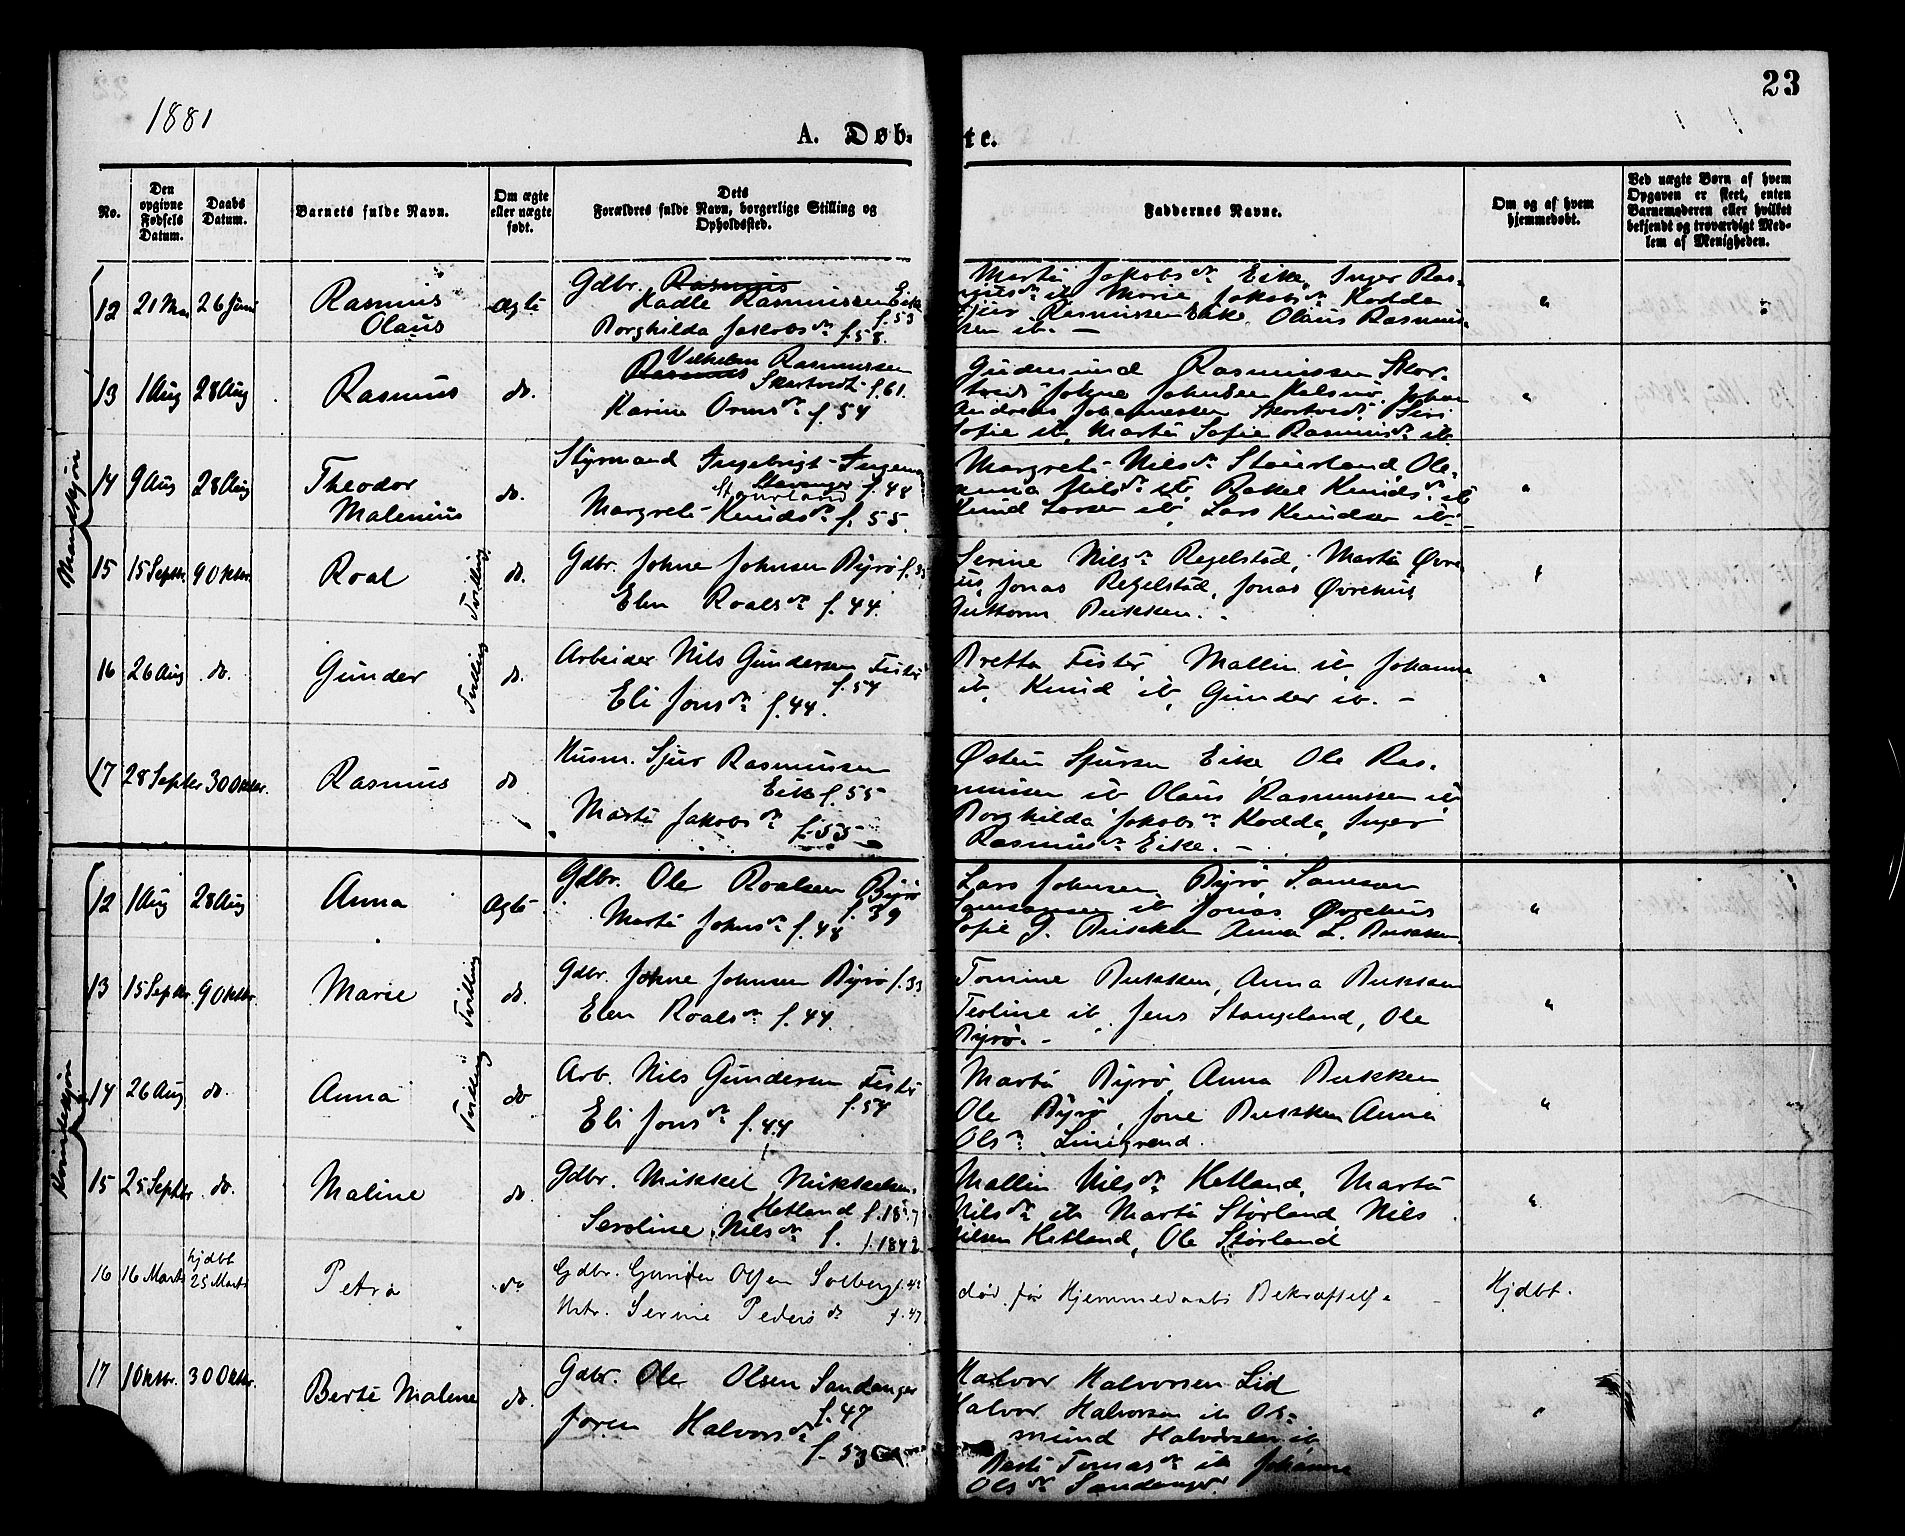 23
1881
A. Døb-
te.
No.
Den opgivne Fødsels Datum.
Daabs Datum.
Barnets fulde Navn.
Om ægte eller uægte født.
Dets Forældres fulde Navn, borgerlige Stilling og Opholdssted.
Faddernes Navne.
Om og af hvem hjemmedøbt.
Ved uægte Børn af hvem Opgaven er skeet, enten Barnemoderen eller hvilket bekjendt og troværdigt Medlem af Menigheden.
Mandkjøn
12 21 Mai 26 Juni Rasmus Olaus Ægte
Gdbr. Rasmus
Kadle Rasmussen Eike
f. 53
Borghilda Jakobsdr f. 58.
Martə Jakobsdr Eike, Inger Ras-
Marie Jakobsdr Kodda
Rasmussen Eike Olaus Rasmus-
sen ib. —
13 1 Aug 28 Aug Rasmus do.
Vilhelm Rasmussen
Rasmus Skartvedt f. 61.
Karine Ormsdr f. 54
Gudmund Rasmussen Skar-
tvedt Johne Johnsen Johan
Andreas Johannessen Skartvedt, Siri
Sofie ib, Marta Sofie Rasmusdr ib.
14 9 Aug 28 Aug Theodor Malenius do.
Styrmand Ingebrigt
Stavanger f. 48
Staurland
Margrete Knudsdr f. 55.
Margrete Nilsdr Staurland, Ole-
anna Nilsdr ib, Rakel Knudsdr ib
Knud Larsen ib, Lars Knudsen ib.
15 15 Septbr. 9 Oktbr. Roal Tvilling do.
Gdbr. Johne Johnsen Byrø f. 33
Elen Roalsdr f. 44.
Serine Nilsdr Regelstad, Marta Øvre-
hus, Jonas Regelstad, Jonas Øvrehus,
Guttorm Bukken.
16 26 Aug do. Gunder Tvilling do.
Arbeider Nils Gundersen Fister
f. 54
Eli Jonsdr f. 44.
Bretta Fister, Mallin ib Johanne
ib, Knud ib, Gunder ib. —
17 28 Septbr 30 Oktbr. Rasmus do
Husm. Sjur Rasmussen
Eike f. 55
Marta Jakobsdr f. 55
Østen Sjursen Eike, Ole Ras-
mussen ib Olaus Rasmussen ib
Borghilda Jakobsdr Kodda, Inger
Rasmusdr Eike. —
Kvindekjøn
12 1 Aug 28 Aug Anna Ægte
Gdbr. Ole Roalsen Byrø
f. 39
Marta Johnsdr f. 48
Lars Johnsen Byrø, Samson
Samsonsen ib Jonas Øvrehus
Sofie J. Bukken Anna L. Bukken
13 15 Septbr 9 Oktbr. Marie Tvilling do.
Gdbr. Johne Johnsen Byrø f. 33
Elen Roalsdr f. 44.
Tomine Bukken, Anna Bukken
Teoline ib, Jens Stangeland, Ole
Byrø. —
14 26 Aug do. Anna Tvilling do
Arb. Nils Gundersen Fister
f. 54
Eli Jonsdr f. 44
Marta Byrø, Anna Bukken
Ole Byrø, Jone Bukken Anna
Olsdr
15 25 Septbr do. Maline do.
Gdbr. Mikkel Mikkelsen
Hetland
Seroline Nilsdr f. f. 1842
Mallin Nilsdr Hetland, Marta
Nilsdr ib Marta Størland Nils
Nilsen Hetland, Ole Størland
16 16 Marts hjdbt 25 Marts Petra do
Gdbr. Gunder Olsen Solberg f. 42
Hstr. Serine Pedersdr f. 47
død før Hjemmedaabs Bekræftelse
Hjdbt.
17 1 Oktbr. 30 Oktbr. Berte Malene do.
Gdbr. Ole Olsen Sandanger
f. 47
Joren Halvorsdr
f. 53
Halvor Halvorsen Lid
Halvor Halvorsen ib Os-
mund Halvorsen ib
Berte Tomasdr ib Johanna
Olsdr Sandanger